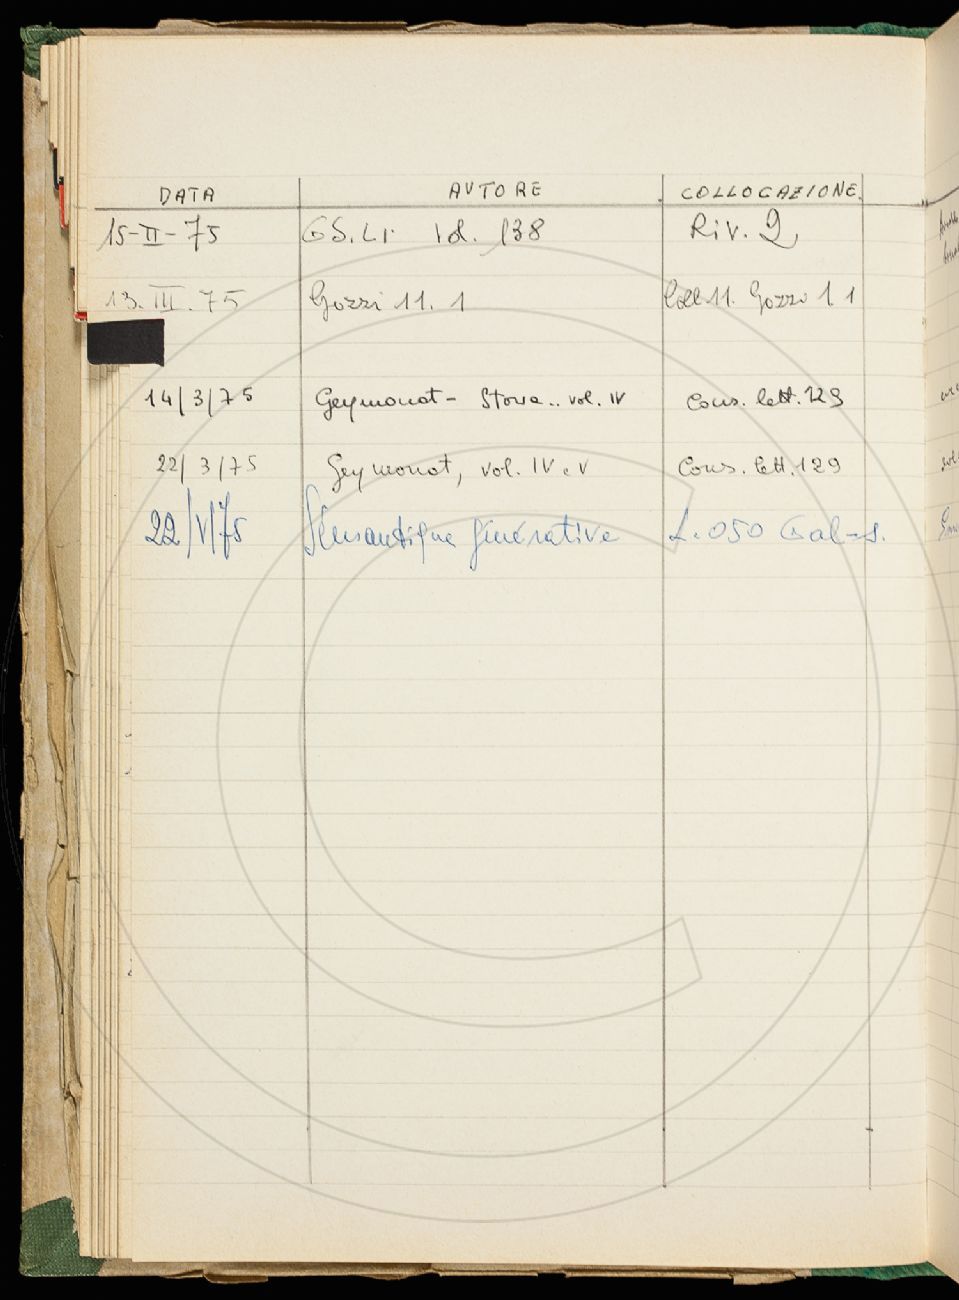 DATA AUTORE COLLOCAZIONE
15-II-75 GSLI Vol. 138 Riv. 2
13.III.75 Gozzi 11. 1 Coll 11. Gozzi 1 1
14/3/75 Geymonat - Storia.. vol. IV Cons. lett. 129
22/3/75 Geymonat, vol. IV e V Cons. lett. 129
22/V/75 Sémantique générative L. 050 Gal-s.